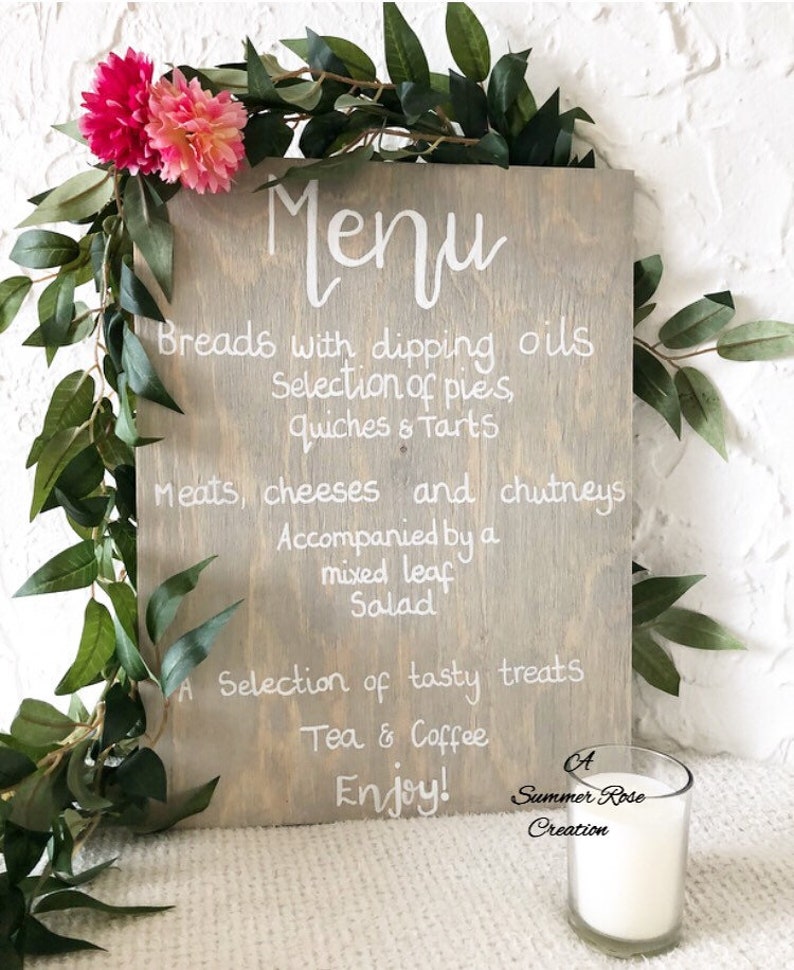 Menu
Breads with dipping oils
Selection of pies,
quiches & Tarts
Meats, cheeses and chutneys
Accompanied by a
mixed leaf
Salad
A Selection of tasty treats
Tea & Coffee
Enjoy!
A
Summer Rose
Creation